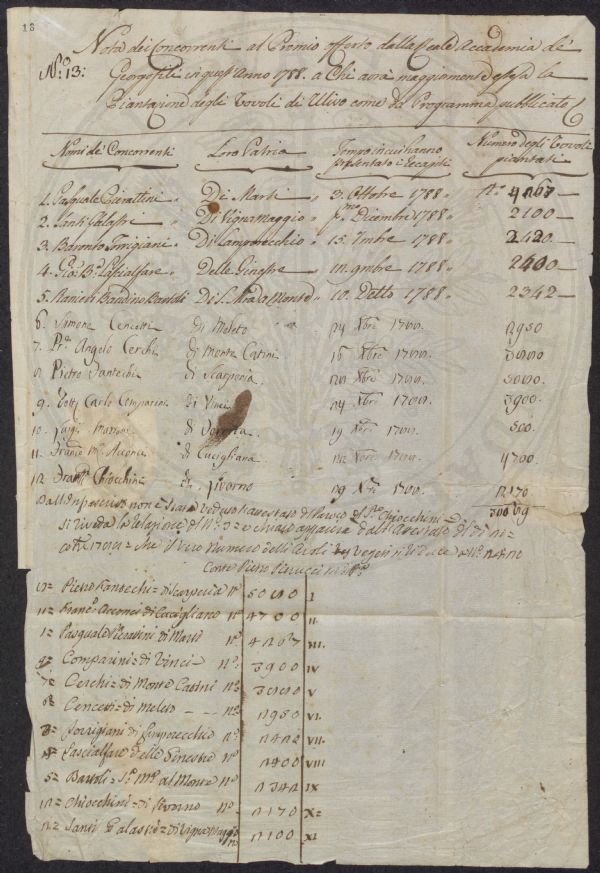 18
Nota dei Concorrenti al Premio offerto dalla Reale Accademia de'
N.º 13: Georgofili in quest'Anno 1788. a Chi avrà maggiormente estesa la
Piantazione degli Vovoli di Ulivo come da Programma pubblicato
Nomi de' Concorrenti Loro Patria Tempo in cui hanno presentato i Recapiti Numero degli Vovoli piantati
1. Pasquale Pierattini Di Marti 3. Ottobre 1788 N.º 4267
2. Santi Galastri Di Vignamaggio Dicembre 1788 2100
3. Baronto Torrigiani Di Lamporecchio 15. 1788 2420
4. Gio: B.ª Lascialfare Delle Ginestre 9mbre 1788 2400
5. Ranieri Bandino Bartoli Di S. M.a a Monte 10. Detto 1788 2342
6. Simone Cencetti di Meleto 24 Xbre 1788. 2950
7. Angelo Cerchi di Monte Catini 16 Xbre 1788. 3000
8. Pietro Fantechi di Scarperia Xbre 1788. 5000.
9. Dott. Carlo Comparini di Vinci 24 Xbre 1788. 3900.
10. Luigi di 19 Xbre 1788. 500.
11. Franco M.ª Acconci di Cucigliana 22 Xbre 1788. 4700
12. Chiocchini di Livorno 29 Xbre 1788. 2170
non Chiocchini
si rivede la Relazione di N.º
il vero Numero delli
Conte Pietro
8= Pietro Fantechi= di Scarperia N.º 5000 I
11= Franc.º Acconci di Cucigliano N.º 4700 II
1= Pasquale Pieratini di Marti N.º 4267 III.
9= Comparini= di Vinci= N.º 3900 IV
7= Cerchi= di Monte Catini N.º 3000 V
6= Cencetti= di Meleto N.º 2950 VI.
3= Torrigiani di Lamporecchio N.º 2412 VII.
4= Lascialfare delle Ginestre N.º 2400 VIII
5= Bartoli= S.ª M.ª al Monte N.º 2342 IX
12= Chiocchini= di Livorno N.º 2170 X=
2= Santi Galastri= di Vignamaggio N.º 2100 XI